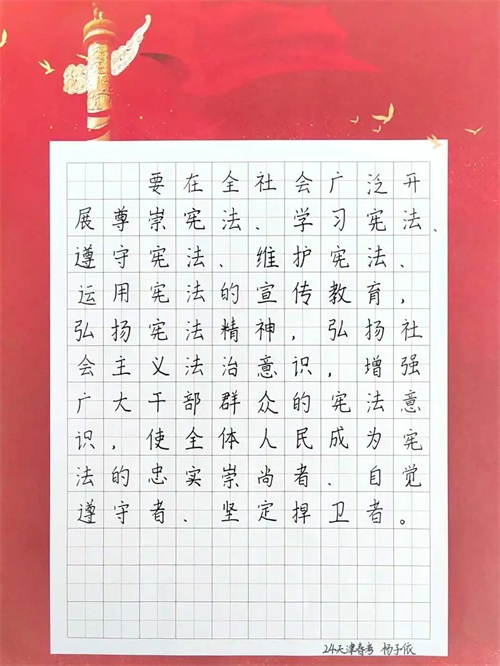 要在全社会广泛开
展尊崇宪法、学习宪法、
遵守宪法、维护宪法、
运用宪法的宣传教育,
弘扬宪法精神,弘扬社
会主义法治意识,增强
广大干部群众的宪法意
识,使全体人民成为宪
法的忠实崇尚者、自觉
遵守者、坚定捍卫者。
24天津春考 杨子依